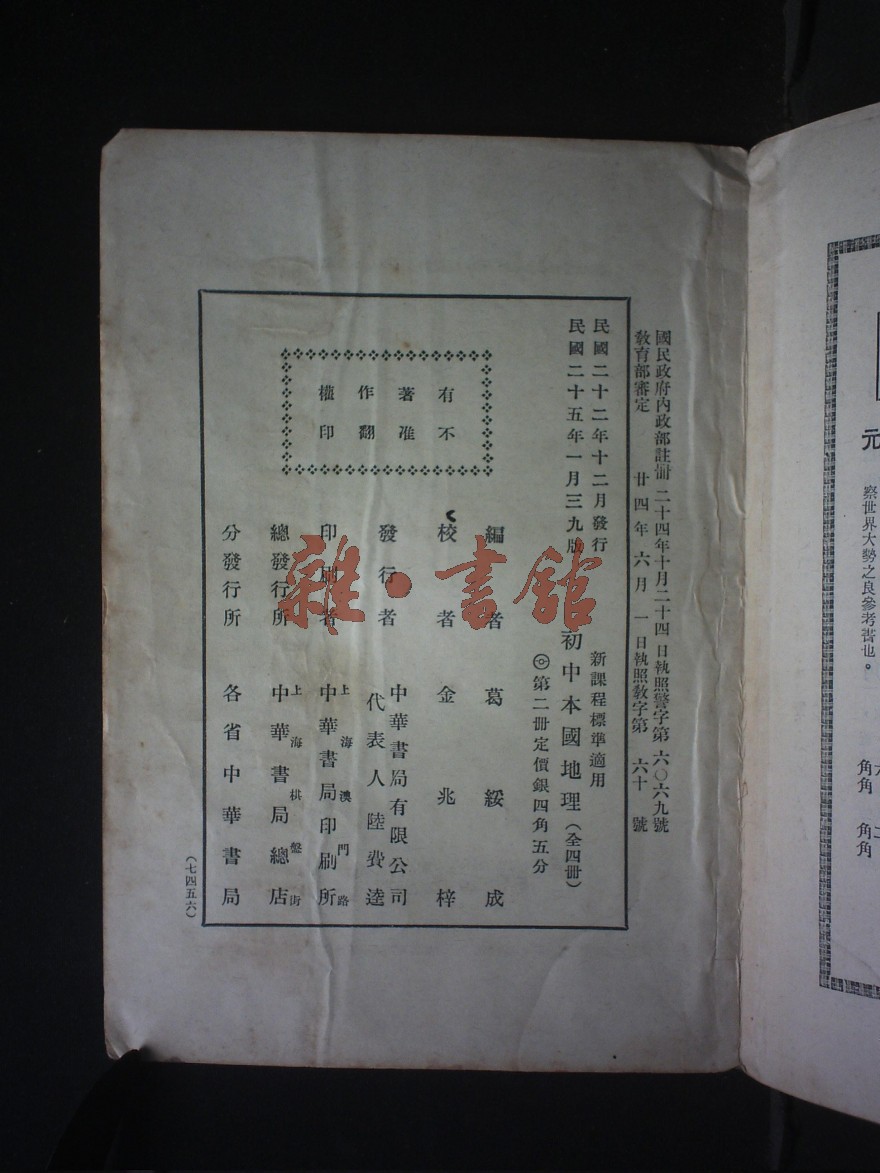 國民政府內政部註冊 二十四年十月二十四日執照警字第六〇六九號
教育部審定 廿四年六月一日執照教字第六十號
民國二十二年十二月發行
民國二十五年一月三九版
新課程標準適用
初中本國地理（全四冊）
第二冊定價銀四角五分
有不
著准
作翻
權印
編者 葛綏成
校者 金兆梓
發行者 中華書局有限公司
代表人 陸費逵
印刷者 上海澳門路
中華書局印刷所
總發行所 上海棋盤街
中華書局總店
分發行所 各省中華書局
（七四五六）
雜·書館
元
察世界大勢之良參考書也。
角 角
二角 角